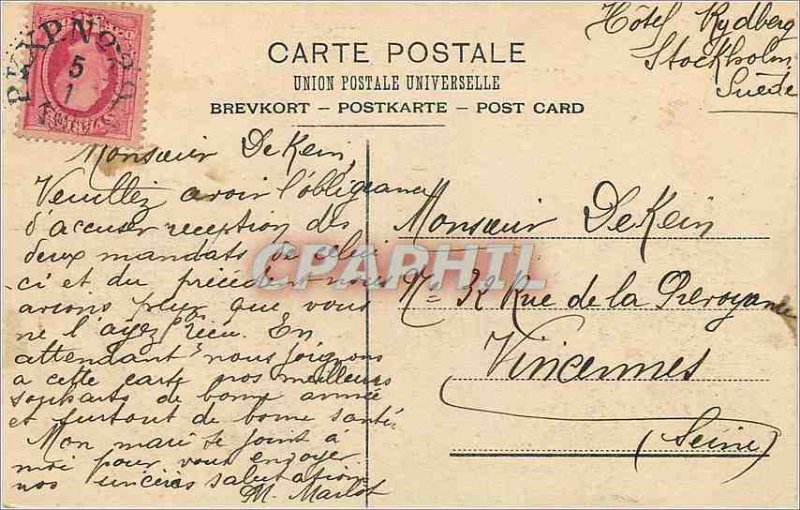 PKXP.No
5
1
CARTE POSTALE
UNION POSTALE UNIVERSELLE
BREVKORT – POSTKARTE – POST CARD
Hôtel Rydberg
Stockholm
Suède
Monsieur DeKein,
Veuillez avoir l'obligeance
d'accuser reception des
deux mandats de celui
ci et du précédent nous
avions peur que vous
ne l'ayez reçu. En
attendant nous joignons
a cette carte nos meilleurs
souhaits de bonne année
et surtout de bonne santé.
Mon mari se joint à
moi pour vous envoyer
nos sincères salutations
M. Marlot
Monsieur DeKein
No 32 Rue de la
Vincennes
(Seine)
CPAPHIL